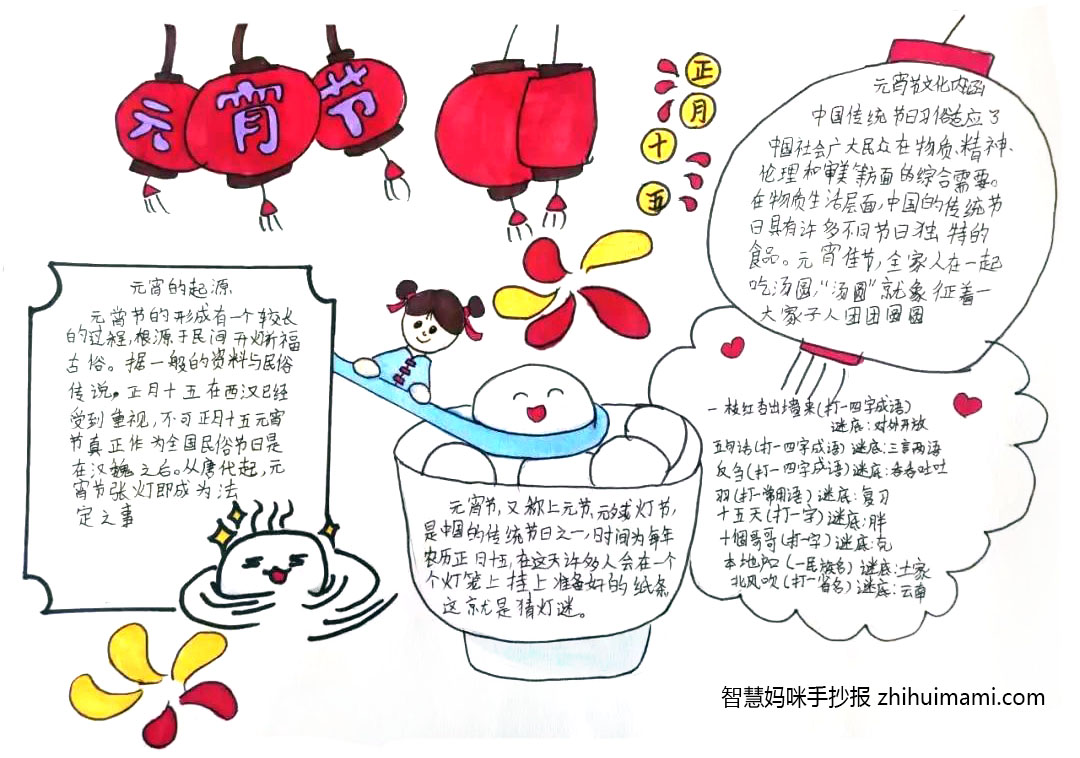 元宵节
正月十五
元宵节文化内涵
中国传统节日习俗适应了
中国社会广大民众在物质、精神、
伦理和审美等方面的综合需要。
在物质生活层面,中国的传统节
日具有许多不同节日独特的
食品。元宵佳节,全家人在一起
吃汤圆,“汤圆”就象征着一
大家子人团团圆圆
元宵的起源
元宵节的形成有一个较长
的过程,根源于民间开灯祈福
古俗。据一般的资料与民俗
传说。正月十五在西汉已经
受到重视,不可正月十五元宵
节真正作为全国民俗节日是
在汉魏之后。从唐代起,元
宵节张灯即成为法
定之事
元宵节,又称上元节,元夕或灯节,
是中国的传统节日之一,时间为每年
农历正月十五,在这天许多人会在一个
个灯笼上挂上准备好的纸条
这就是猜灯谜。
一枝红杏出墙来(打一四字成语)
谜底:对外开放
五句话(打一四字成语)谜底:三言两语
反刍(打一四字成语)谜底:吞吞吐吐
羽(打一常用语)谜底:复习
十五天(打一字)谜底:胖
十個哥哥(打一字)谜底:克
本地户口(一民族名)谜底:土家
北风吹(打一省名)谜底:云南
智慧妈咪手抄报 zhihuimami.com